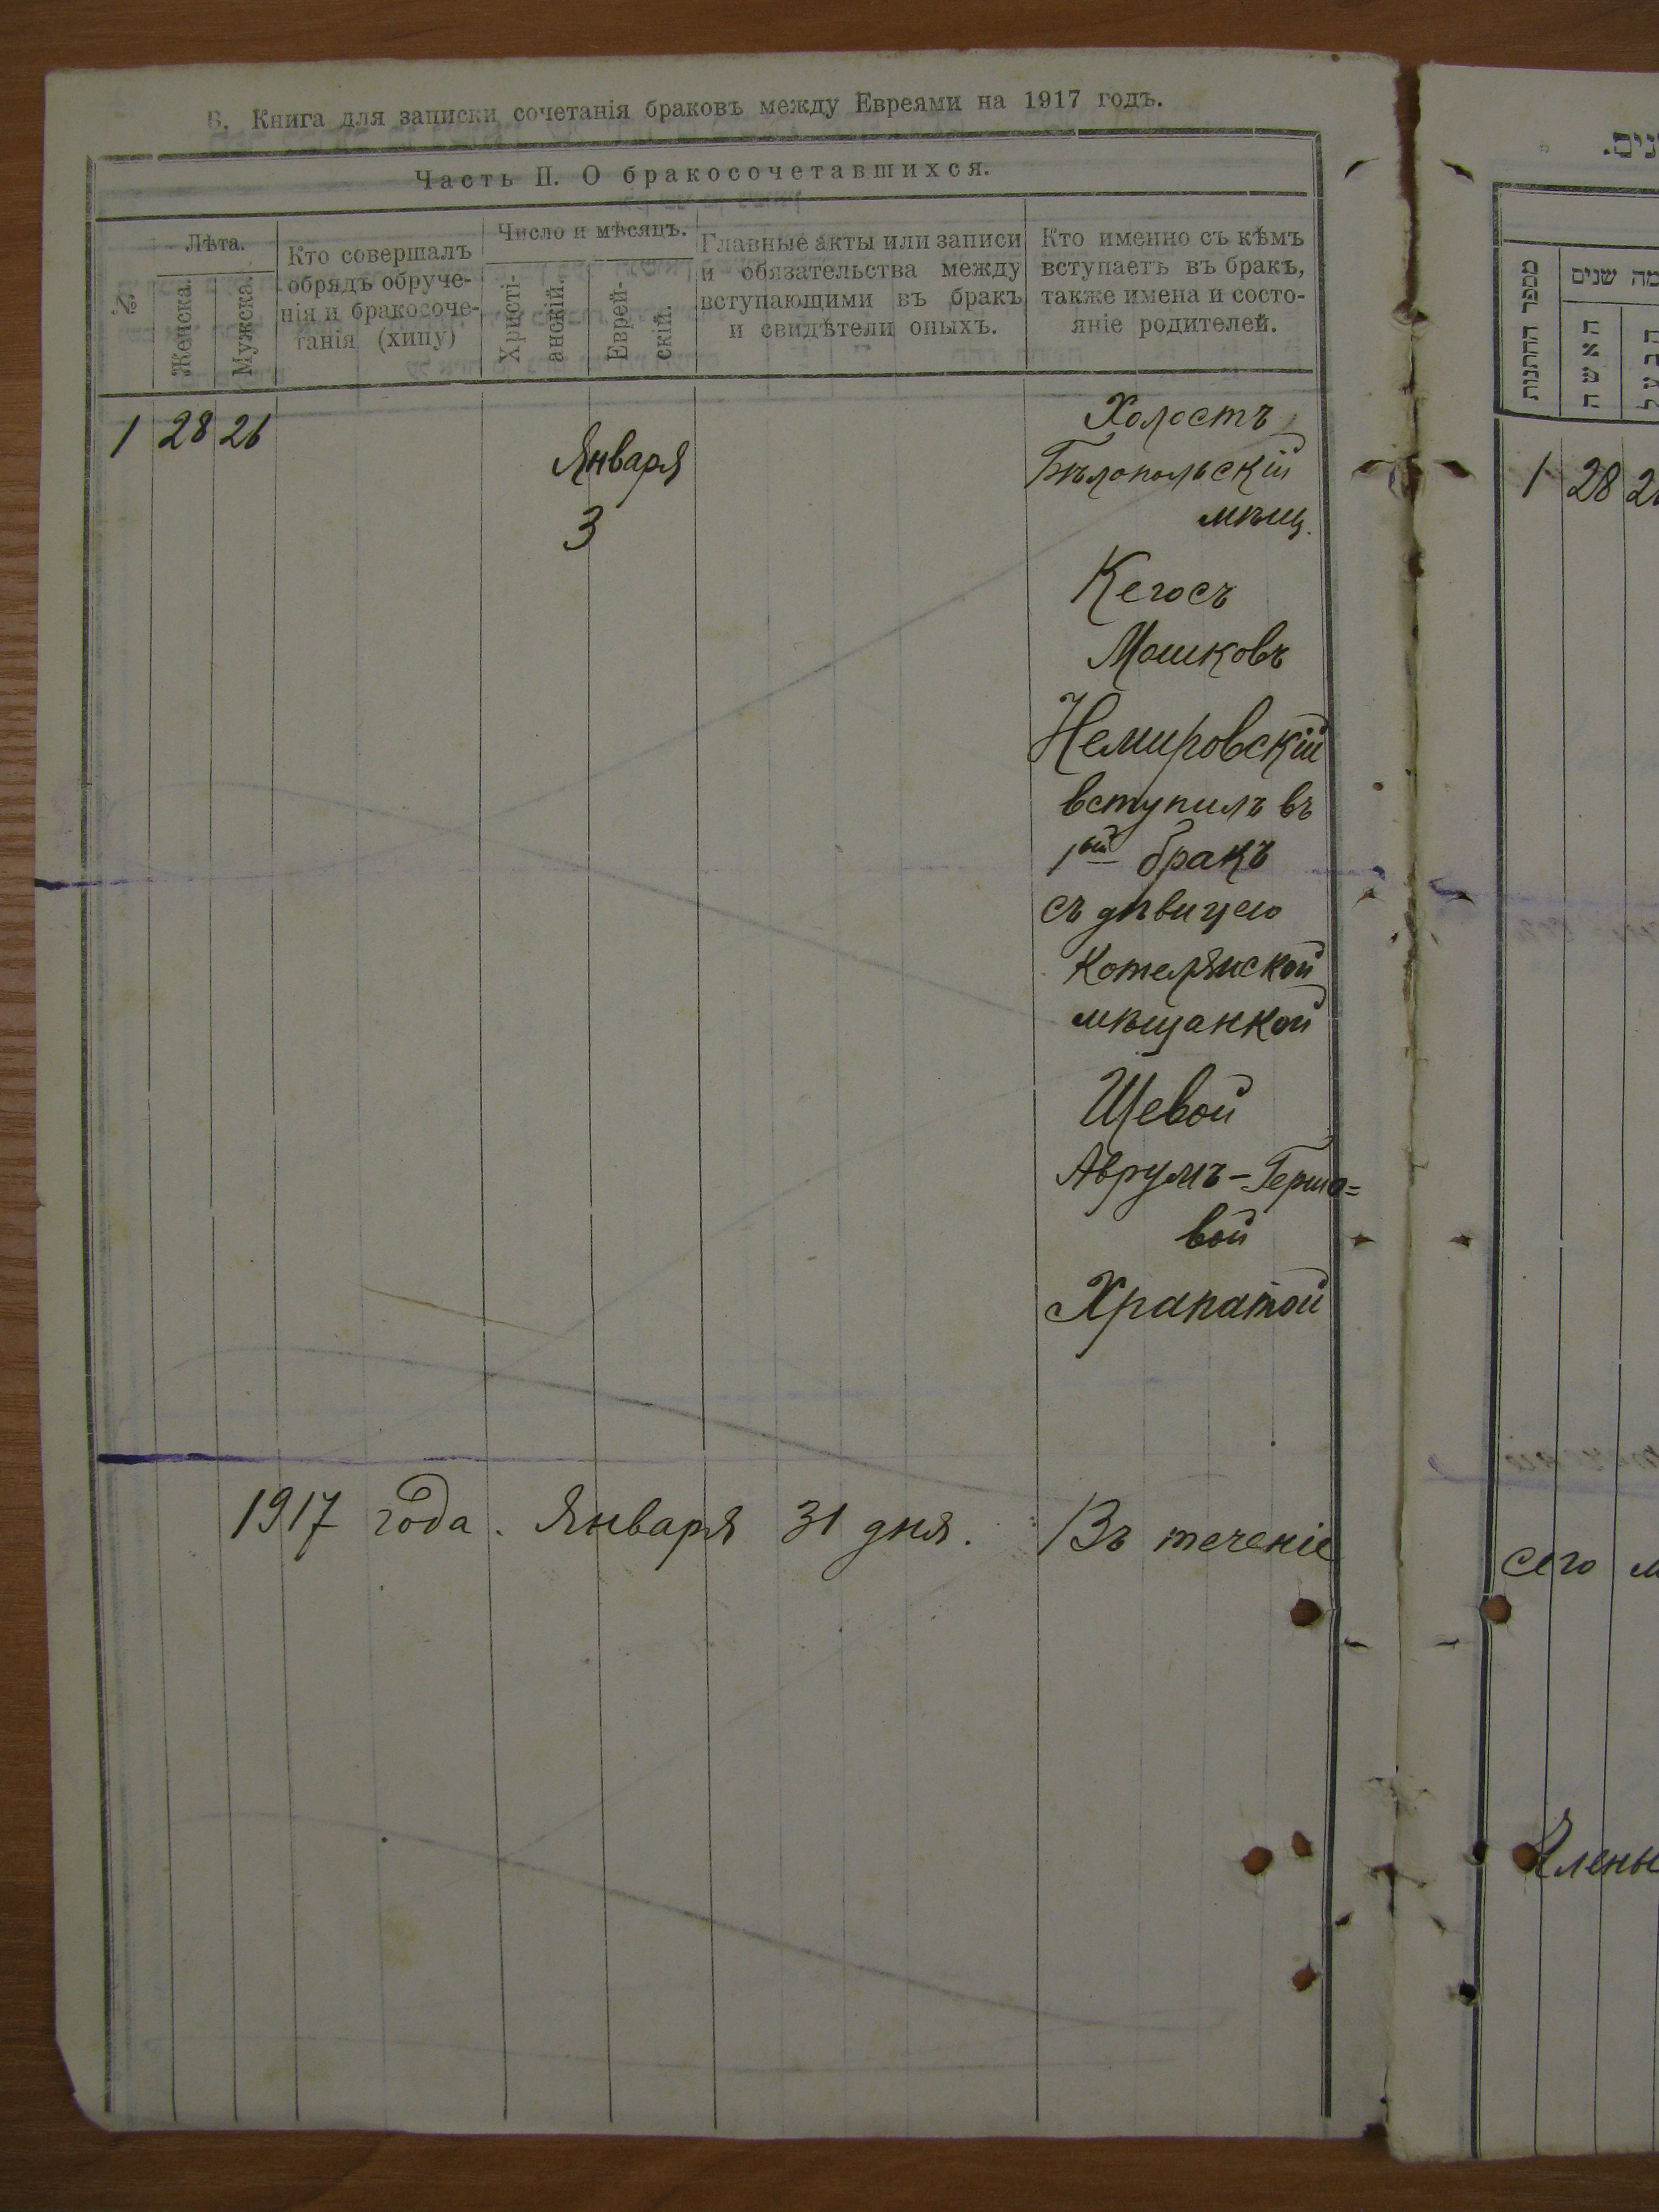 В. Книга для записки сочетанія браковъ между Евреями на 1917 годъ.
Часть II. О бракосочетавшихся.
№.
Лѣта.
Женска.
Мужска.
Кто совершалъ
обрядъ обруче-
нія и бракосоче-
танія (хипу)
Число и мѣсяцъ.
Христі-
анскій.
Еврей-
скій.
Главные акты или записи
и обязательства между
вступающими въ бракъ
и свидѣтели оныхъ.
Кто именно съ кѣмъ
вступаетъ въ бракъ,
также имена и состо-
яніе родителей.
1 28 26
Января
3
Холостъ
Бѣлопольскій
мѣщ.
Кегосъ
Мошковъ
Немировскій
вступилъ въ
1ый бракъ
съ дѣвицею
Котелянской
мѣщанкой
Шевой
Аврумъ-Гершо=
вой
Храпатой
1917 года. Января 31 дня. Въ теченіе
נים.
מספר החתנות
מה שנים
האשה
הבעל
1 28 2
сего м
Члены